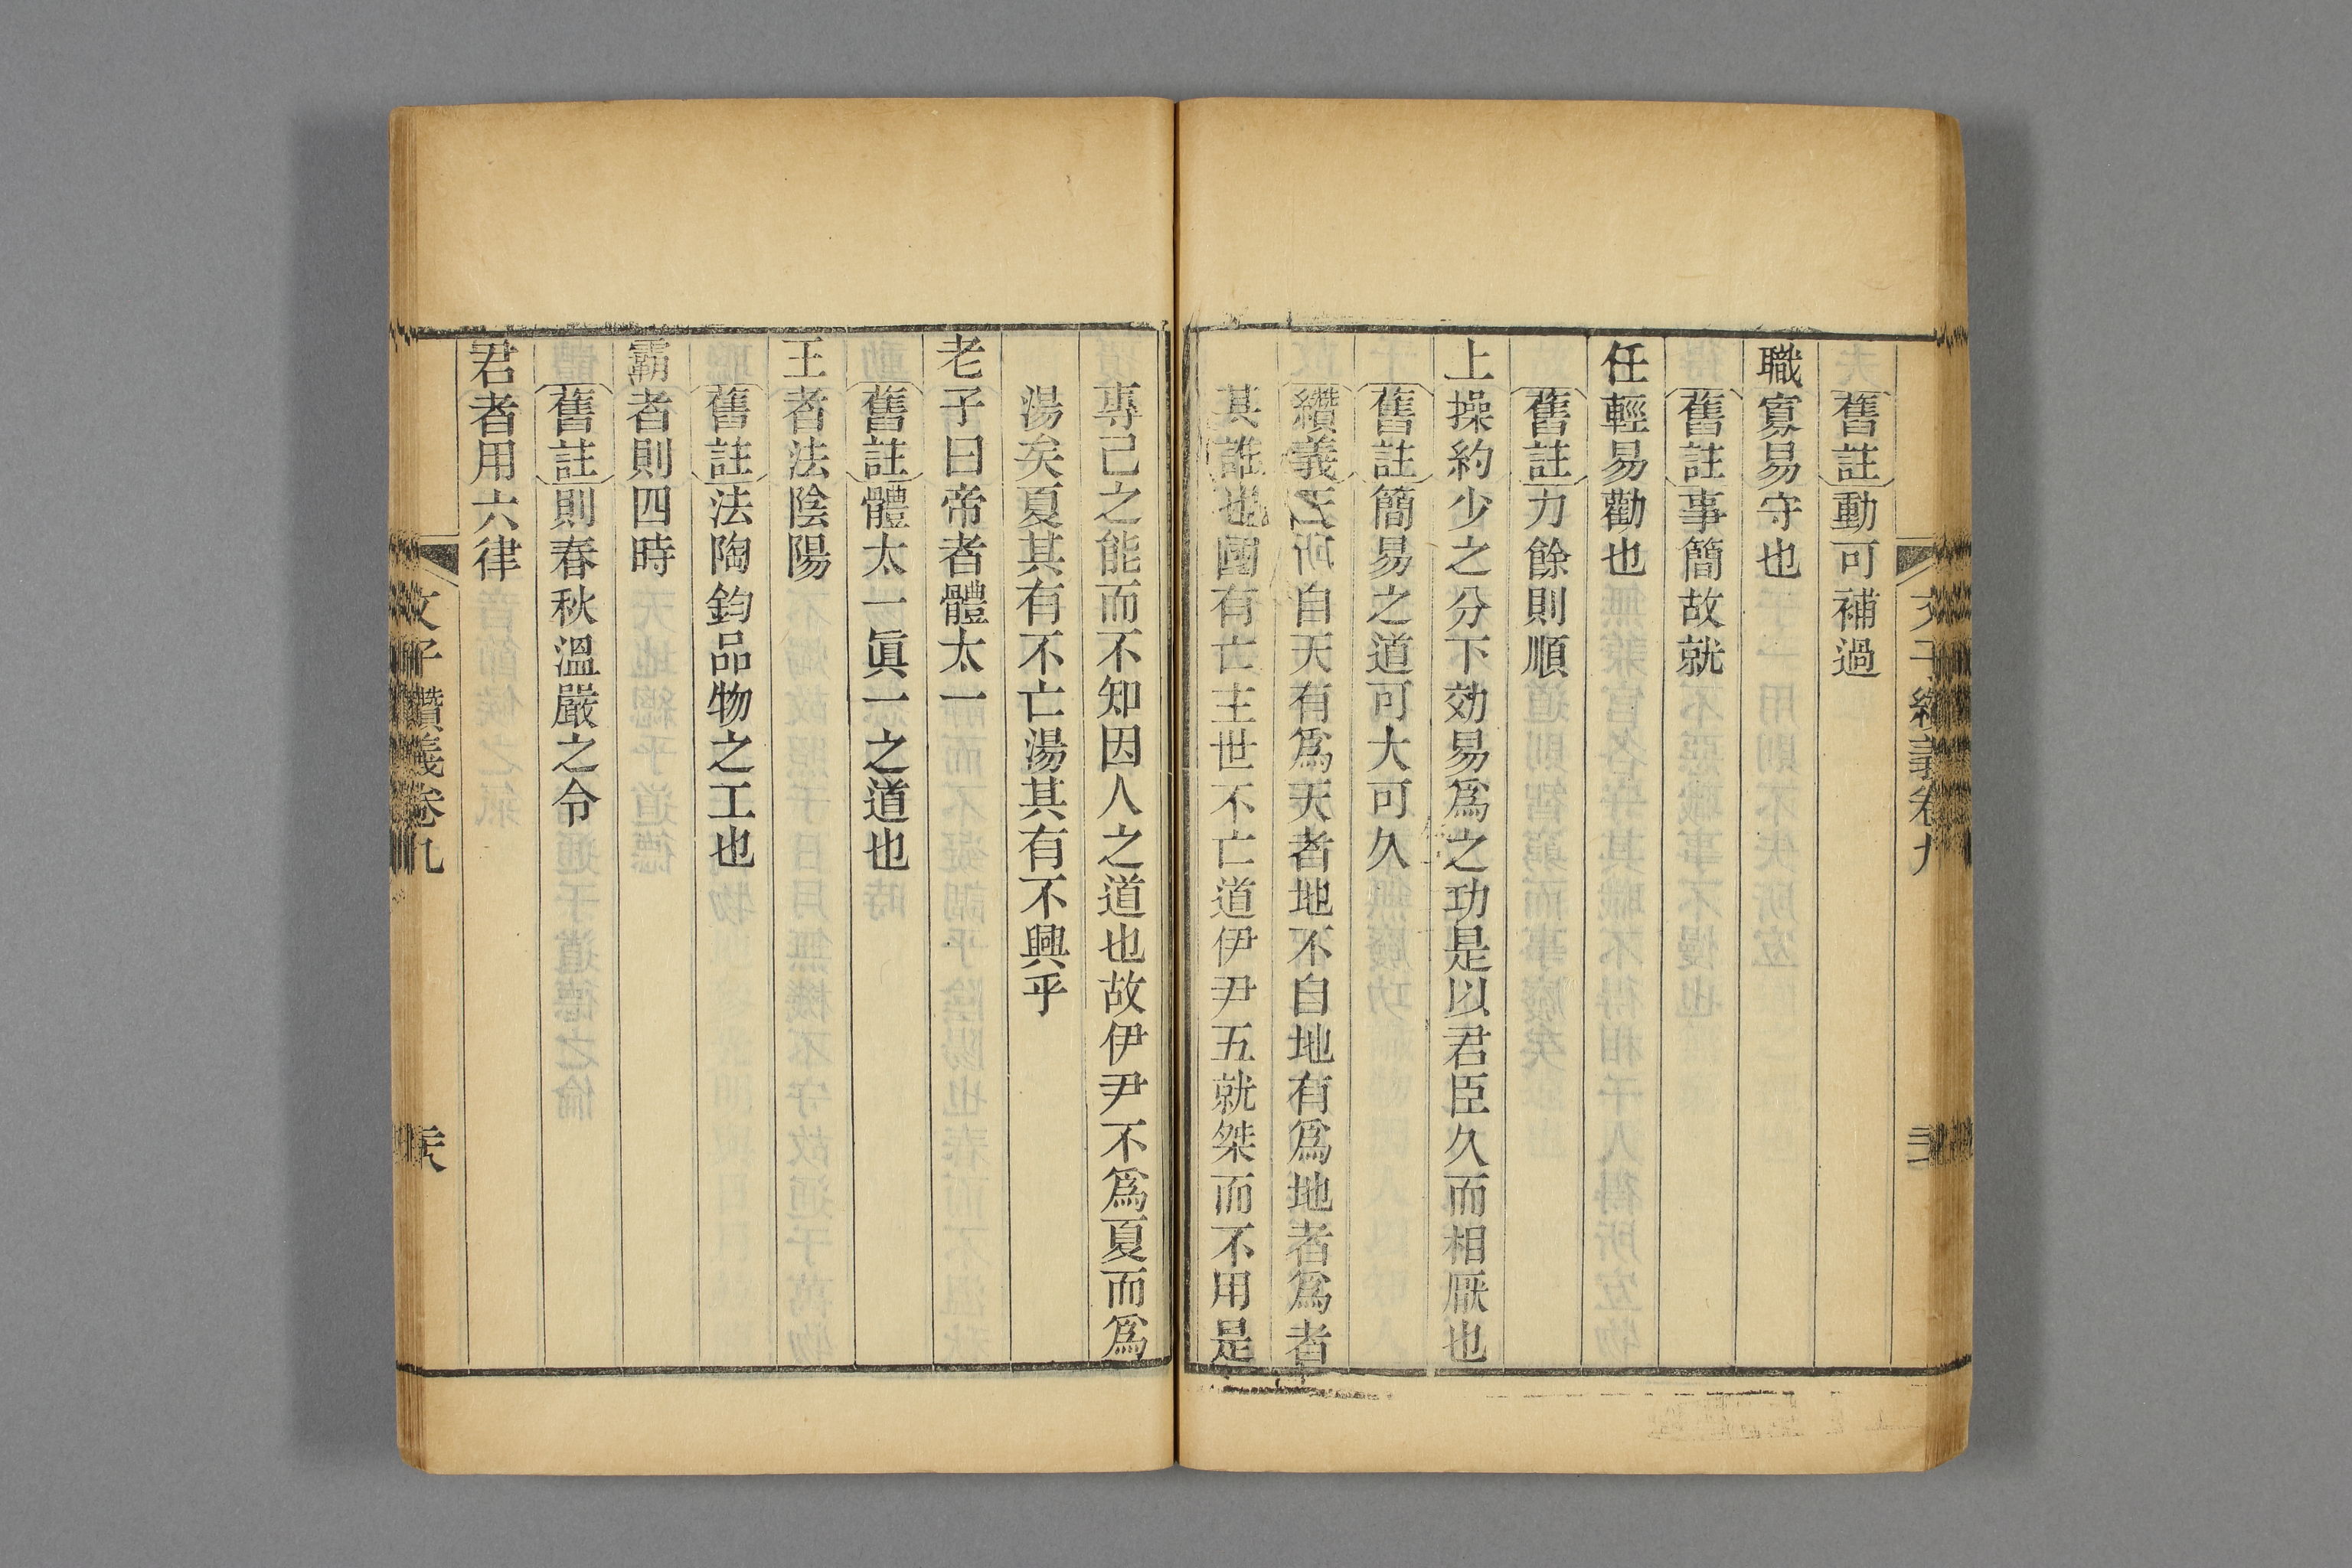 舊註動可補過
職寡易守也
舊註事簡故就
任輕易勸也
舊註力餘則順
上操約少之分下効易爲之功是以君臣久而相厭也
舊註簡易之道可大可久
纘義天所自天有爲天者地不自地有爲地者爲者
其誰也國有亡主世不亡道伊尹五就桀而不用是
專己之能而不知因人之道也故伊尹不爲夏而爲
湯矣夏其有不亡湯其有不興乎
老子曰帝者體太一
舊註體太一眞一之道也
王者法陰陽
舊註法陶鈞品物之工也
霸者則四時
舊註則春秋溫嚴之令
君者用六律
文子纘義卷九